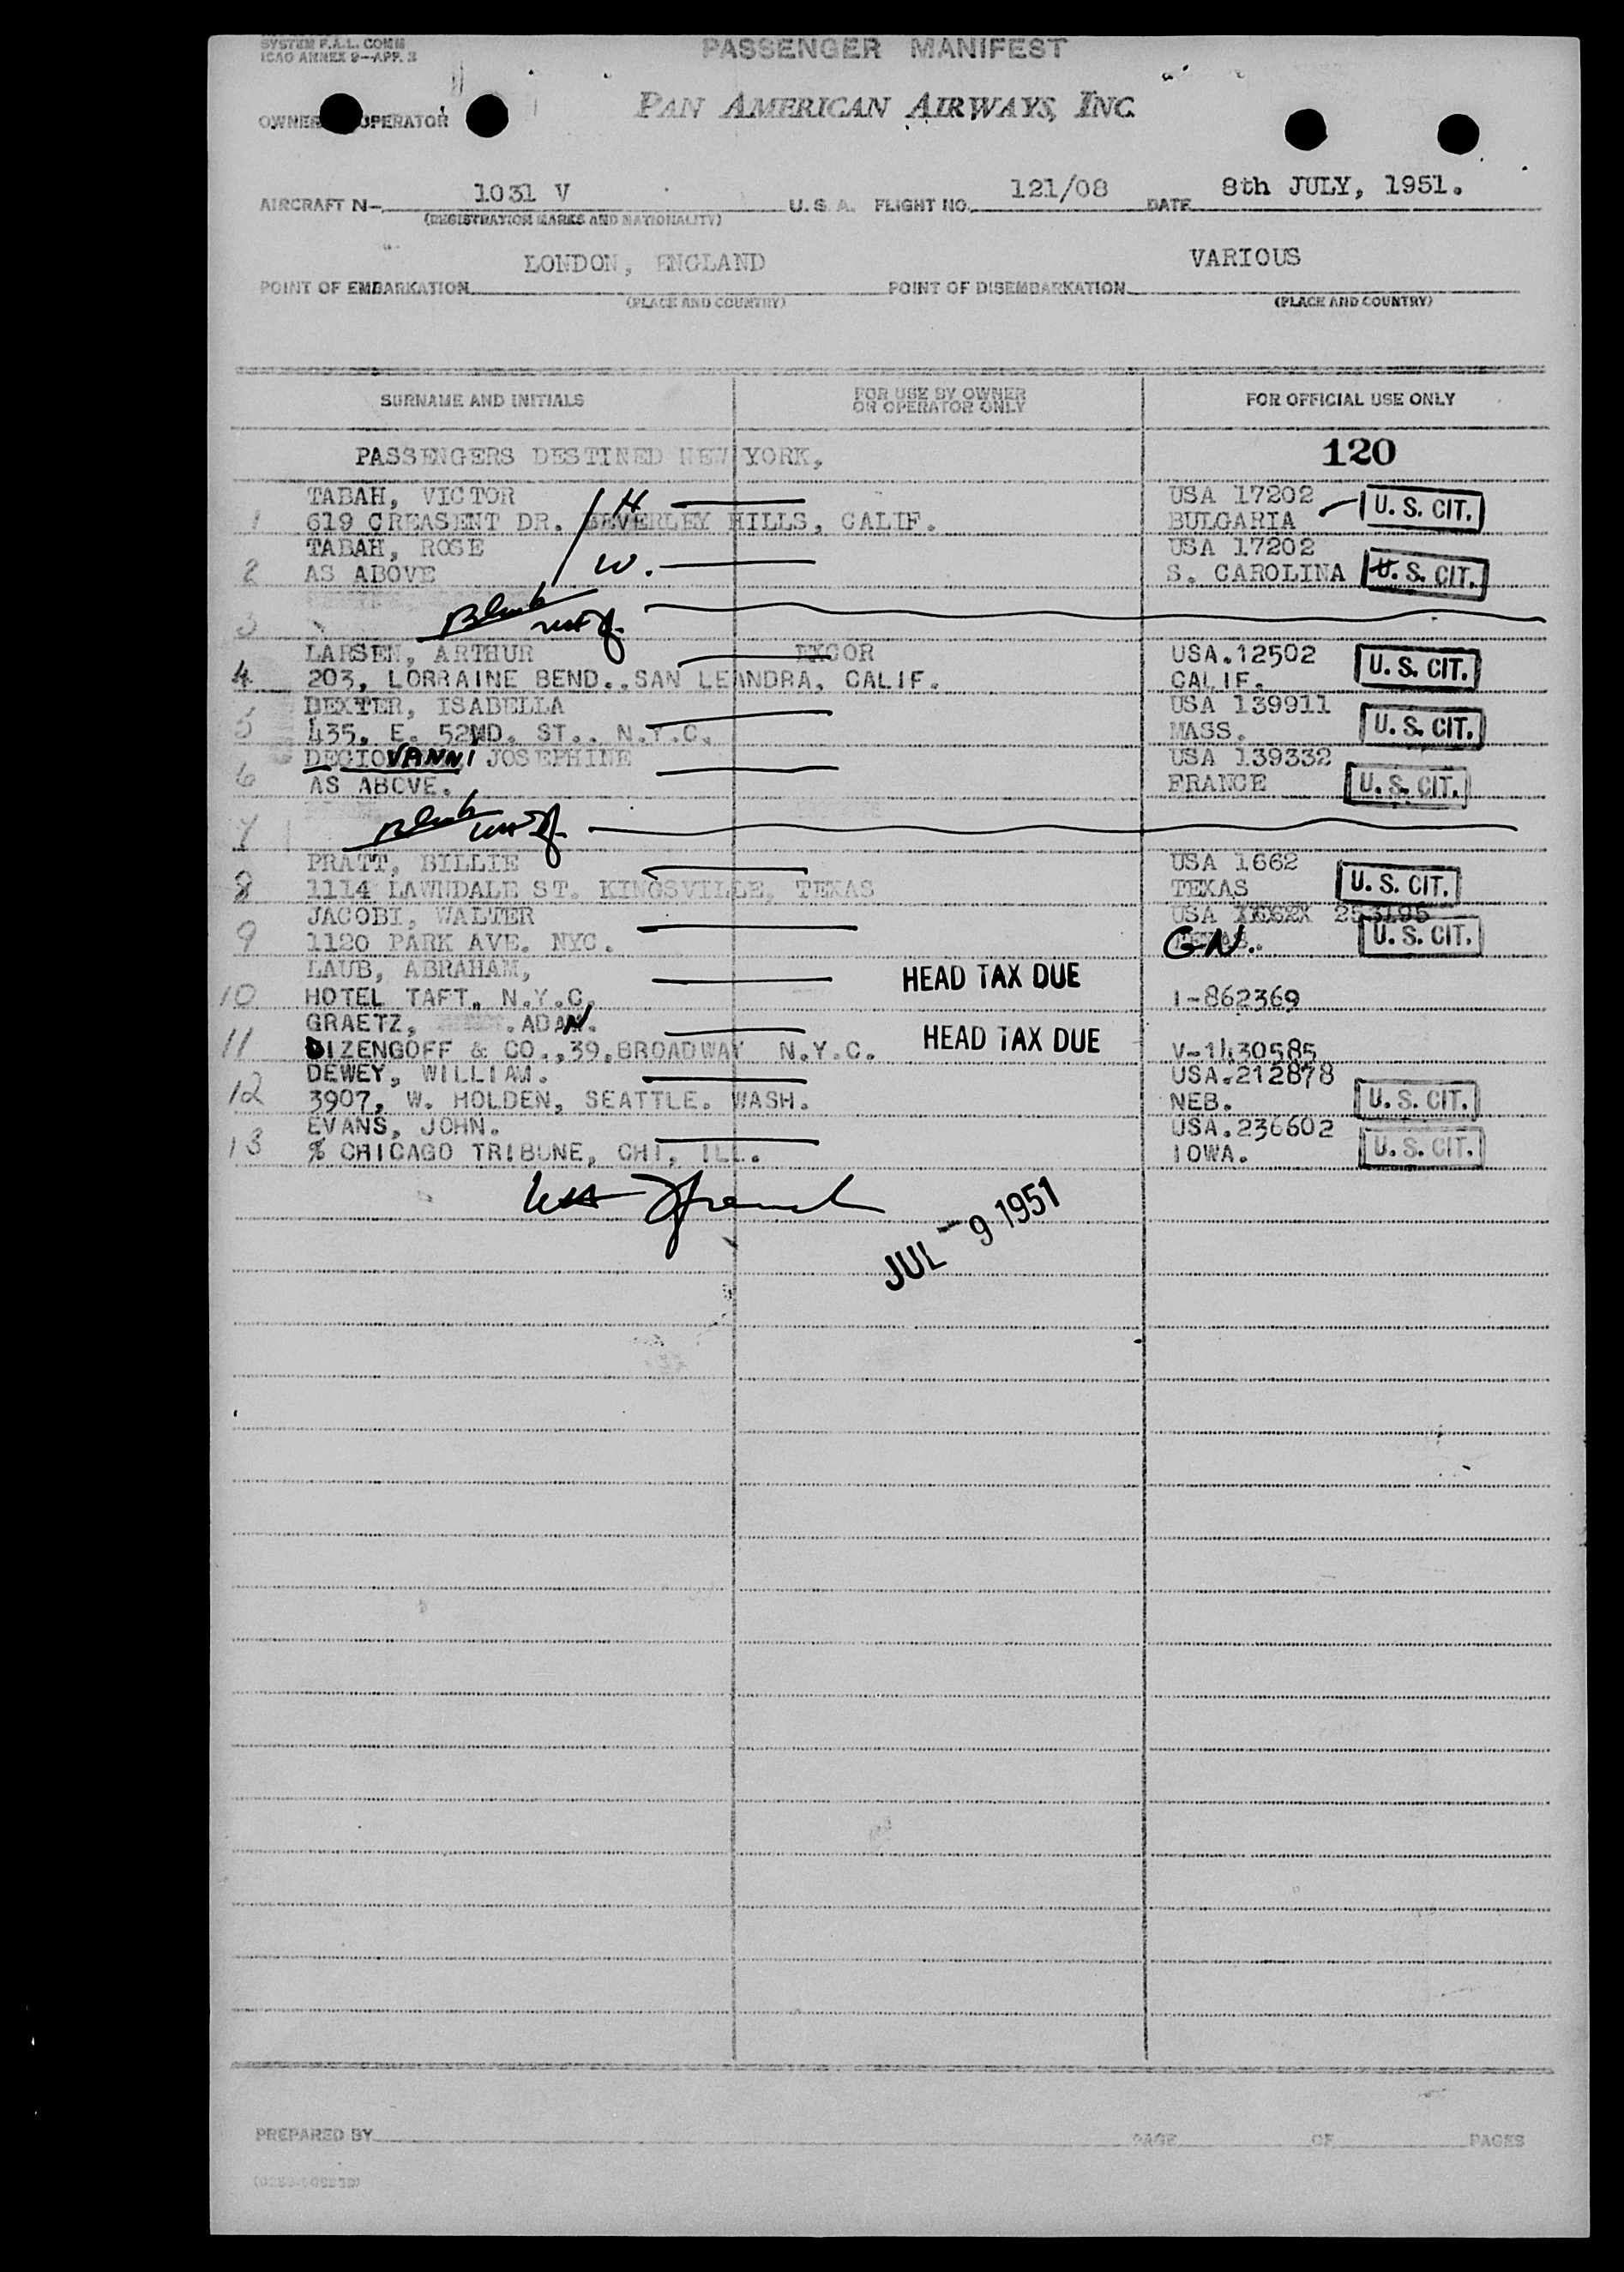 SYSTEM F.A.L. COMM
ICAO ANNEX 9—APP. 3
PASSENGER MANIFEST
OWNER OPERATOR
PAN AMERICAN AIRWAYS, INC.
AIRCRAFT N- 1031 V U. S. A. FLIGHT NO. 121/08 DATE 8th JULY, 1951.
(REGISTRATION MARKS AND NATIONALITY)
POINT OF EMBARKATION LONDON, ENGLAND POINT OF DISEMBARKATION VARIOUS
(PLACE AND COUNTRY) (PLACE AND COUNTRY)
SURNAME AND INITIALS FOR USE BY OWNER OR OPERATOR ONLY FOR OFFICIAL USE ONLY
PASSENGERS DESTINED NEW YORK, 120
TABAH, VICTOR H USA 17202 U. S. CIT.
1 619 CREASENT DR. BEVERLEY HILLS, CALIF. BULGARIA
TABAH, ROSE USA 17202
2 AS ABOVE W. S. CAROLINA U. S. CIT.
3 Blank
LARSEN, ARTHUR EXCOR USA.12502 U. S. CIT.
4 203, LORRAINE BEND.,SAN LEANDRA, CALIF. CALIF.
DEXTER, ISABELLA USA 139911
5 435. E. 52ND. ST.. N.Y.C. MASS. U. S. CIT.
DEGIOVANNI JOSEPHINE USA 139332
6 AS ABOVE. FRANCE U. S. CIT.
7 Blank
PRATT, BILLIE USA 1662
8 1114 LAWNDALE ST. KINGSVILLE, TEXAS TEXAS U. S. CIT.
JACOBI, WALTER USA 253195
9 1120 PARK AVE. NYC. G.N. U. S. CIT.
LAUB, ABRAHAM, HEAD TAX DUE
10 HOTEL TAFT. N.Y.C. I-862369
GRAETZ, .ADAN. HEAD TAX DUE
11 DIZENGOFF & CO.,39.BROADWAY N.Y.C. V-1430585
DEWEY, WILLIAM. USA.212878
12 3907, W. HOLDEN, SEATTLE. WASH. NEB. U. S. CIT.
EVANS, JOHN. USA.236602
13 % CHICAGO TRIBUNE, CHI, ILL. IOWA. U. S. CIT.
JUL - 9 1951
PREPARED BY PAGE OF PAGES